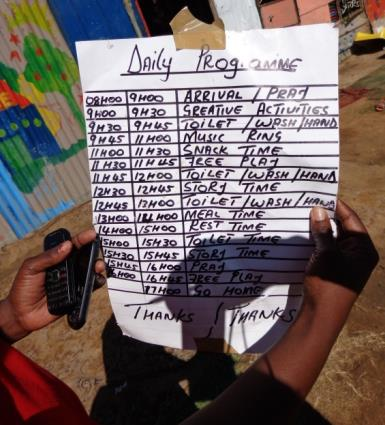 Daily Programme
08H00 9H00 ARRIVAL / PRAY
9H00 9H30 GREATIVE ACTIVITIES
9H30 9H45 TOILET / WASH / HAND
9H45 11H00 MUSIC RING
11H00 11H30 SNACK TIME
11H30 11H45 FREE PLAY
11H45 12H00 TOILET / WASH / HAND
12H30 12H45 STORY TIME
12H45 13H00 TOILET / WASH / HAND
13H00 14H00 MEAL TIME
14H00 15H00 REST TIME
15H00 15H30 TOILET TIME
15H30 15H45 STORY TIME
15H45 16H00 PRAY
16H00 16H45 FREE PLAY
17H00 GO HOME
THANKS / THANKS